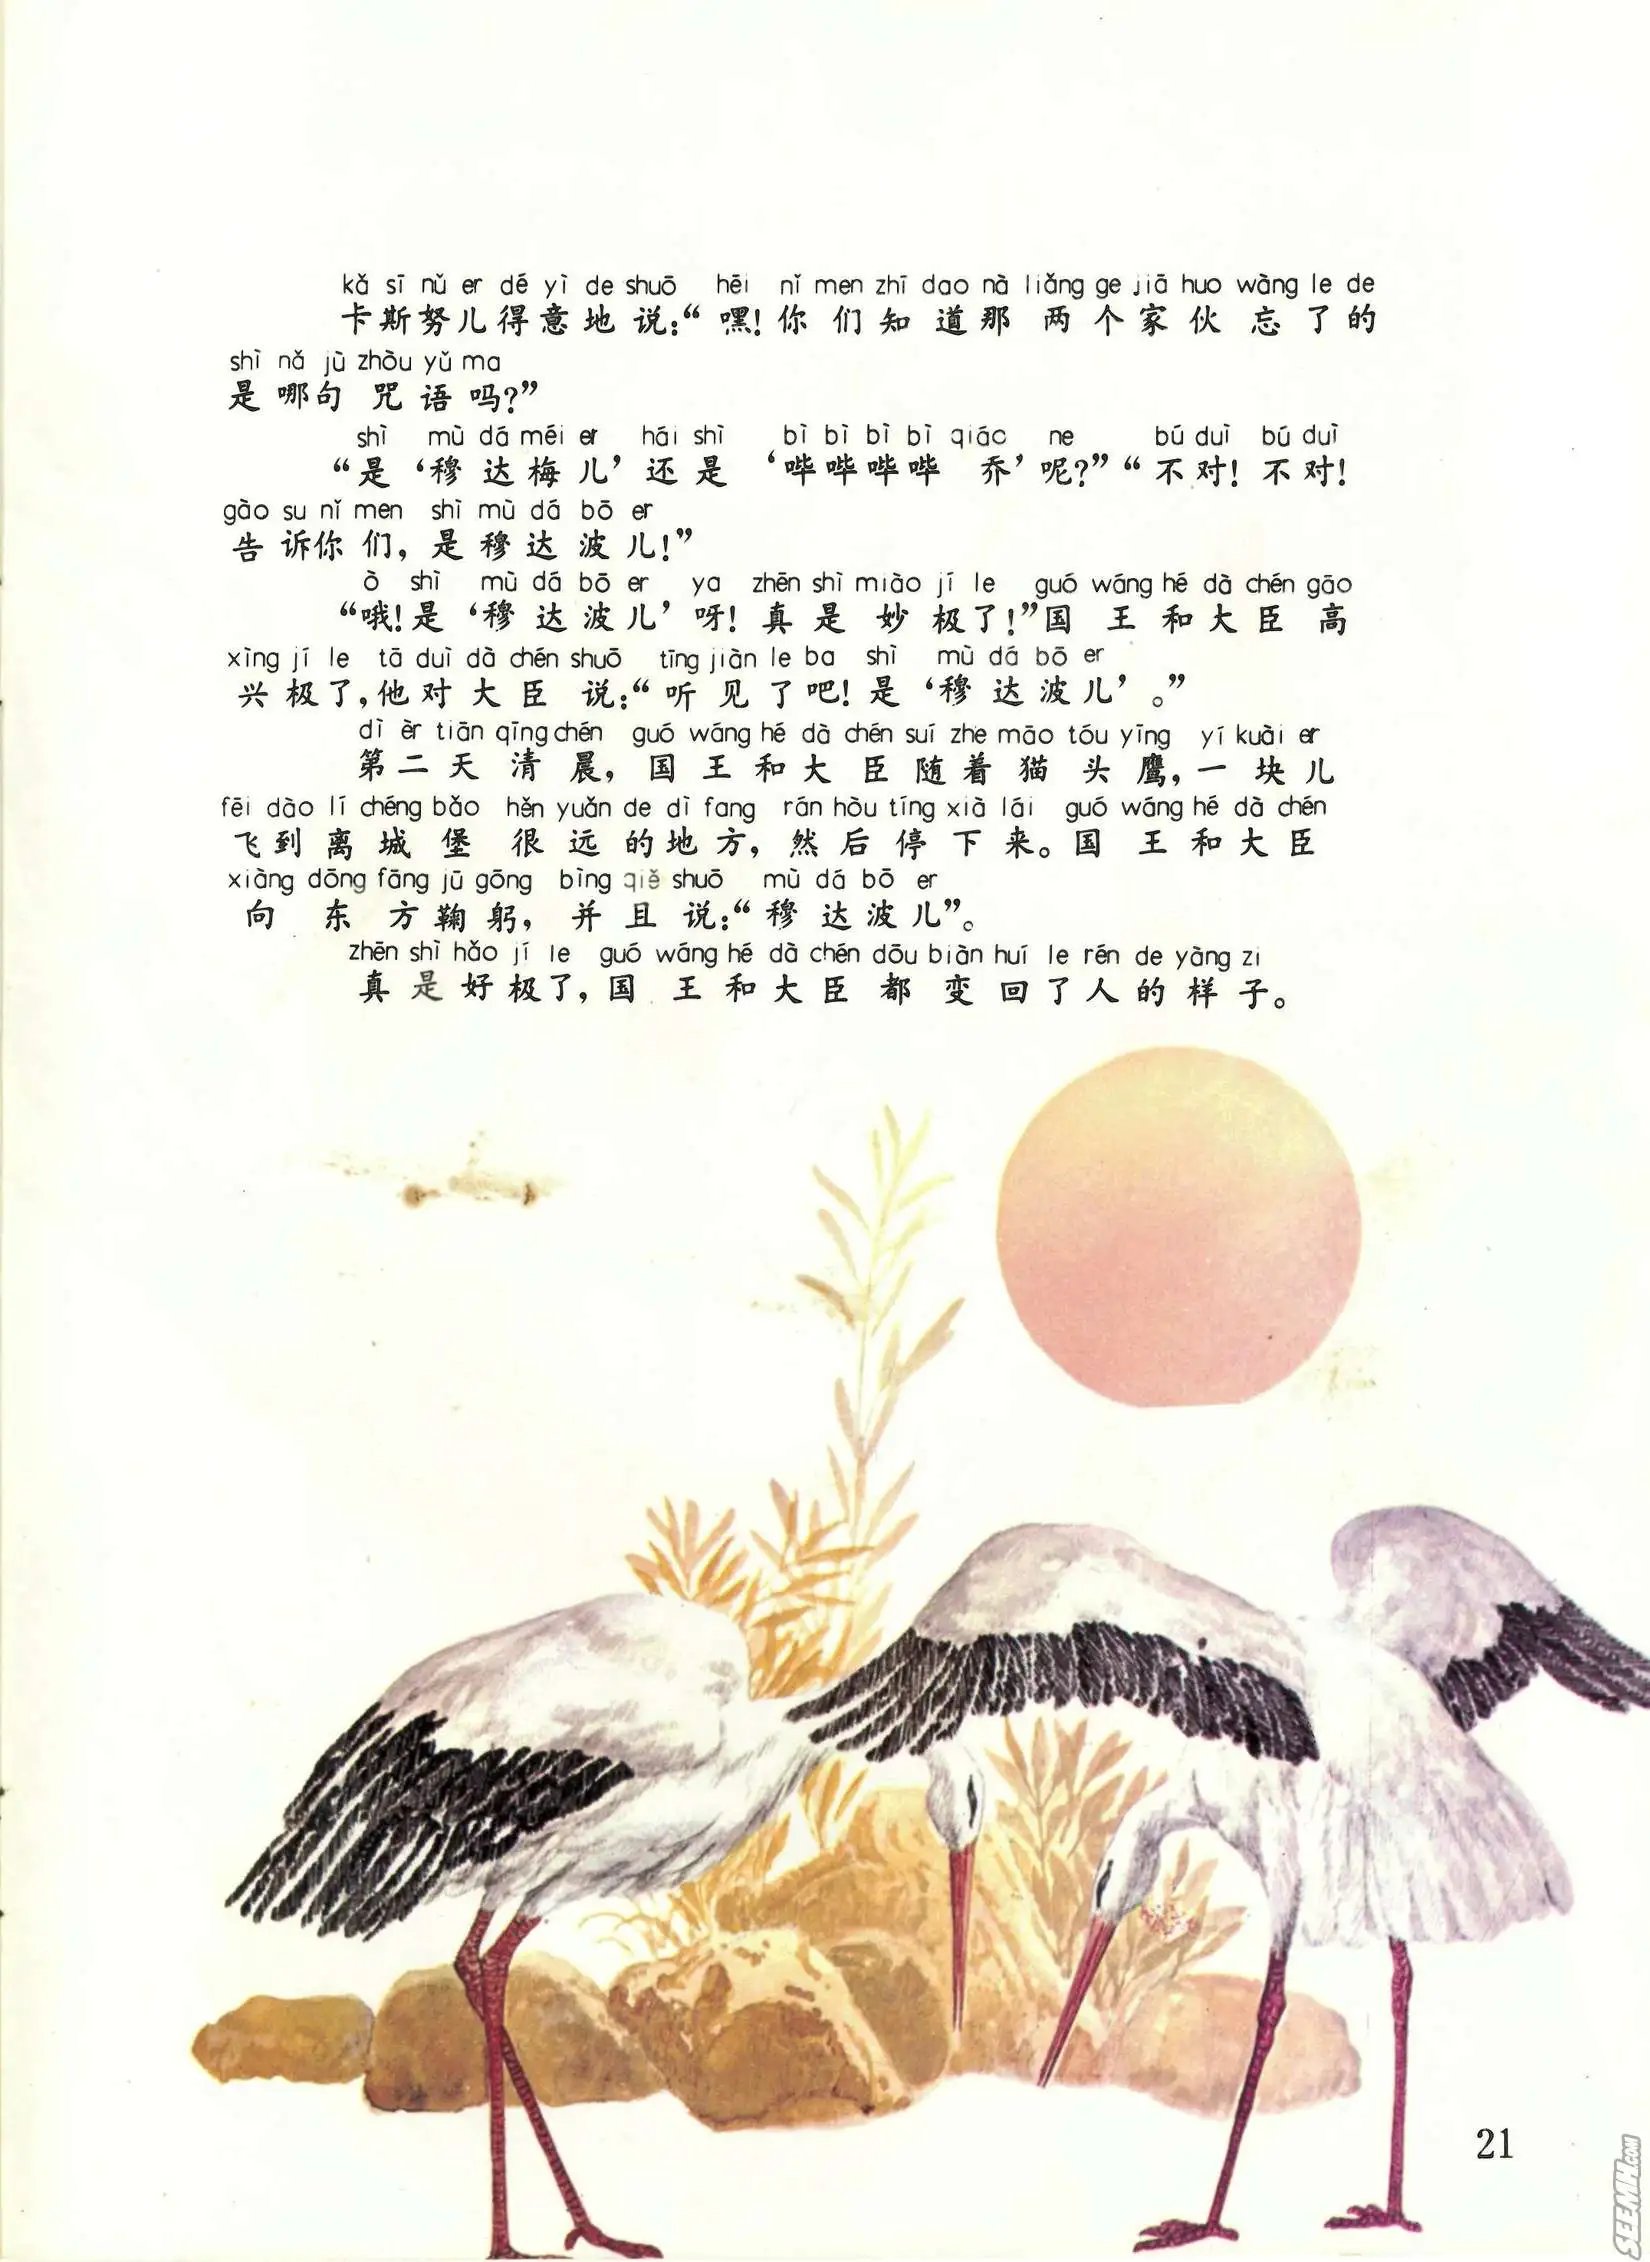 kǎ sī nǔ er dé yì de shuō hēi nǐ men zhī dao nà liǎng ge jiā huo wàng le de
卡斯努儿得意地说：“嘿！你们知道那两个家伙忘了的
shì nǎ jù zhòu yǔ ma
是哪句咒语吗？”
shì mù dá méi er hái shì bì bì bì bì qiáo ne bú duì bú duì
“是‘穆达梅儿’还是‘哔哔哔哔乔’呢？”“不对！不对！
gào su nǐ men shì mù dá bō er
告诉你们，是穆达波儿！”
ò shì mù dá bō er ya zhēn shì miào jí le guó wáng hé dà chén gāo
“哦！是‘穆达波儿’呀！真是妙极了！”国王和大臣高
xìng jí le tā duì dà chén shuō tīng jiàn le ba shì mù dá bō er
兴极了，他对大臣说：“听见了吧！是‘穆达波儿’。”
dì èr tiān qīng chén guó wáng hé dà chén suí zhe māo tóu yīng yí kuài er
第二天清晨，国王和大臣随着猫头鹰，一块儿
fēi dào lí chéng bǎo hěn yuǎn de dì fang rán hòu tíng xià lái guó wáng hé dà chén
飞到离城堡很远的地方，然后停下来。国王和大臣
xiàng dōng fāng jū gōng bìng qiě shuō mù dá bō er
向东方鞠躬，并且说：“穆达波儿”。
zhēn shì hǎo jí le guó wáng hé dà chén dōu biàn huí le rén de yàng zi
真是好极了，国王和大臣都变回了人的样子。
21
SEEMH.COM